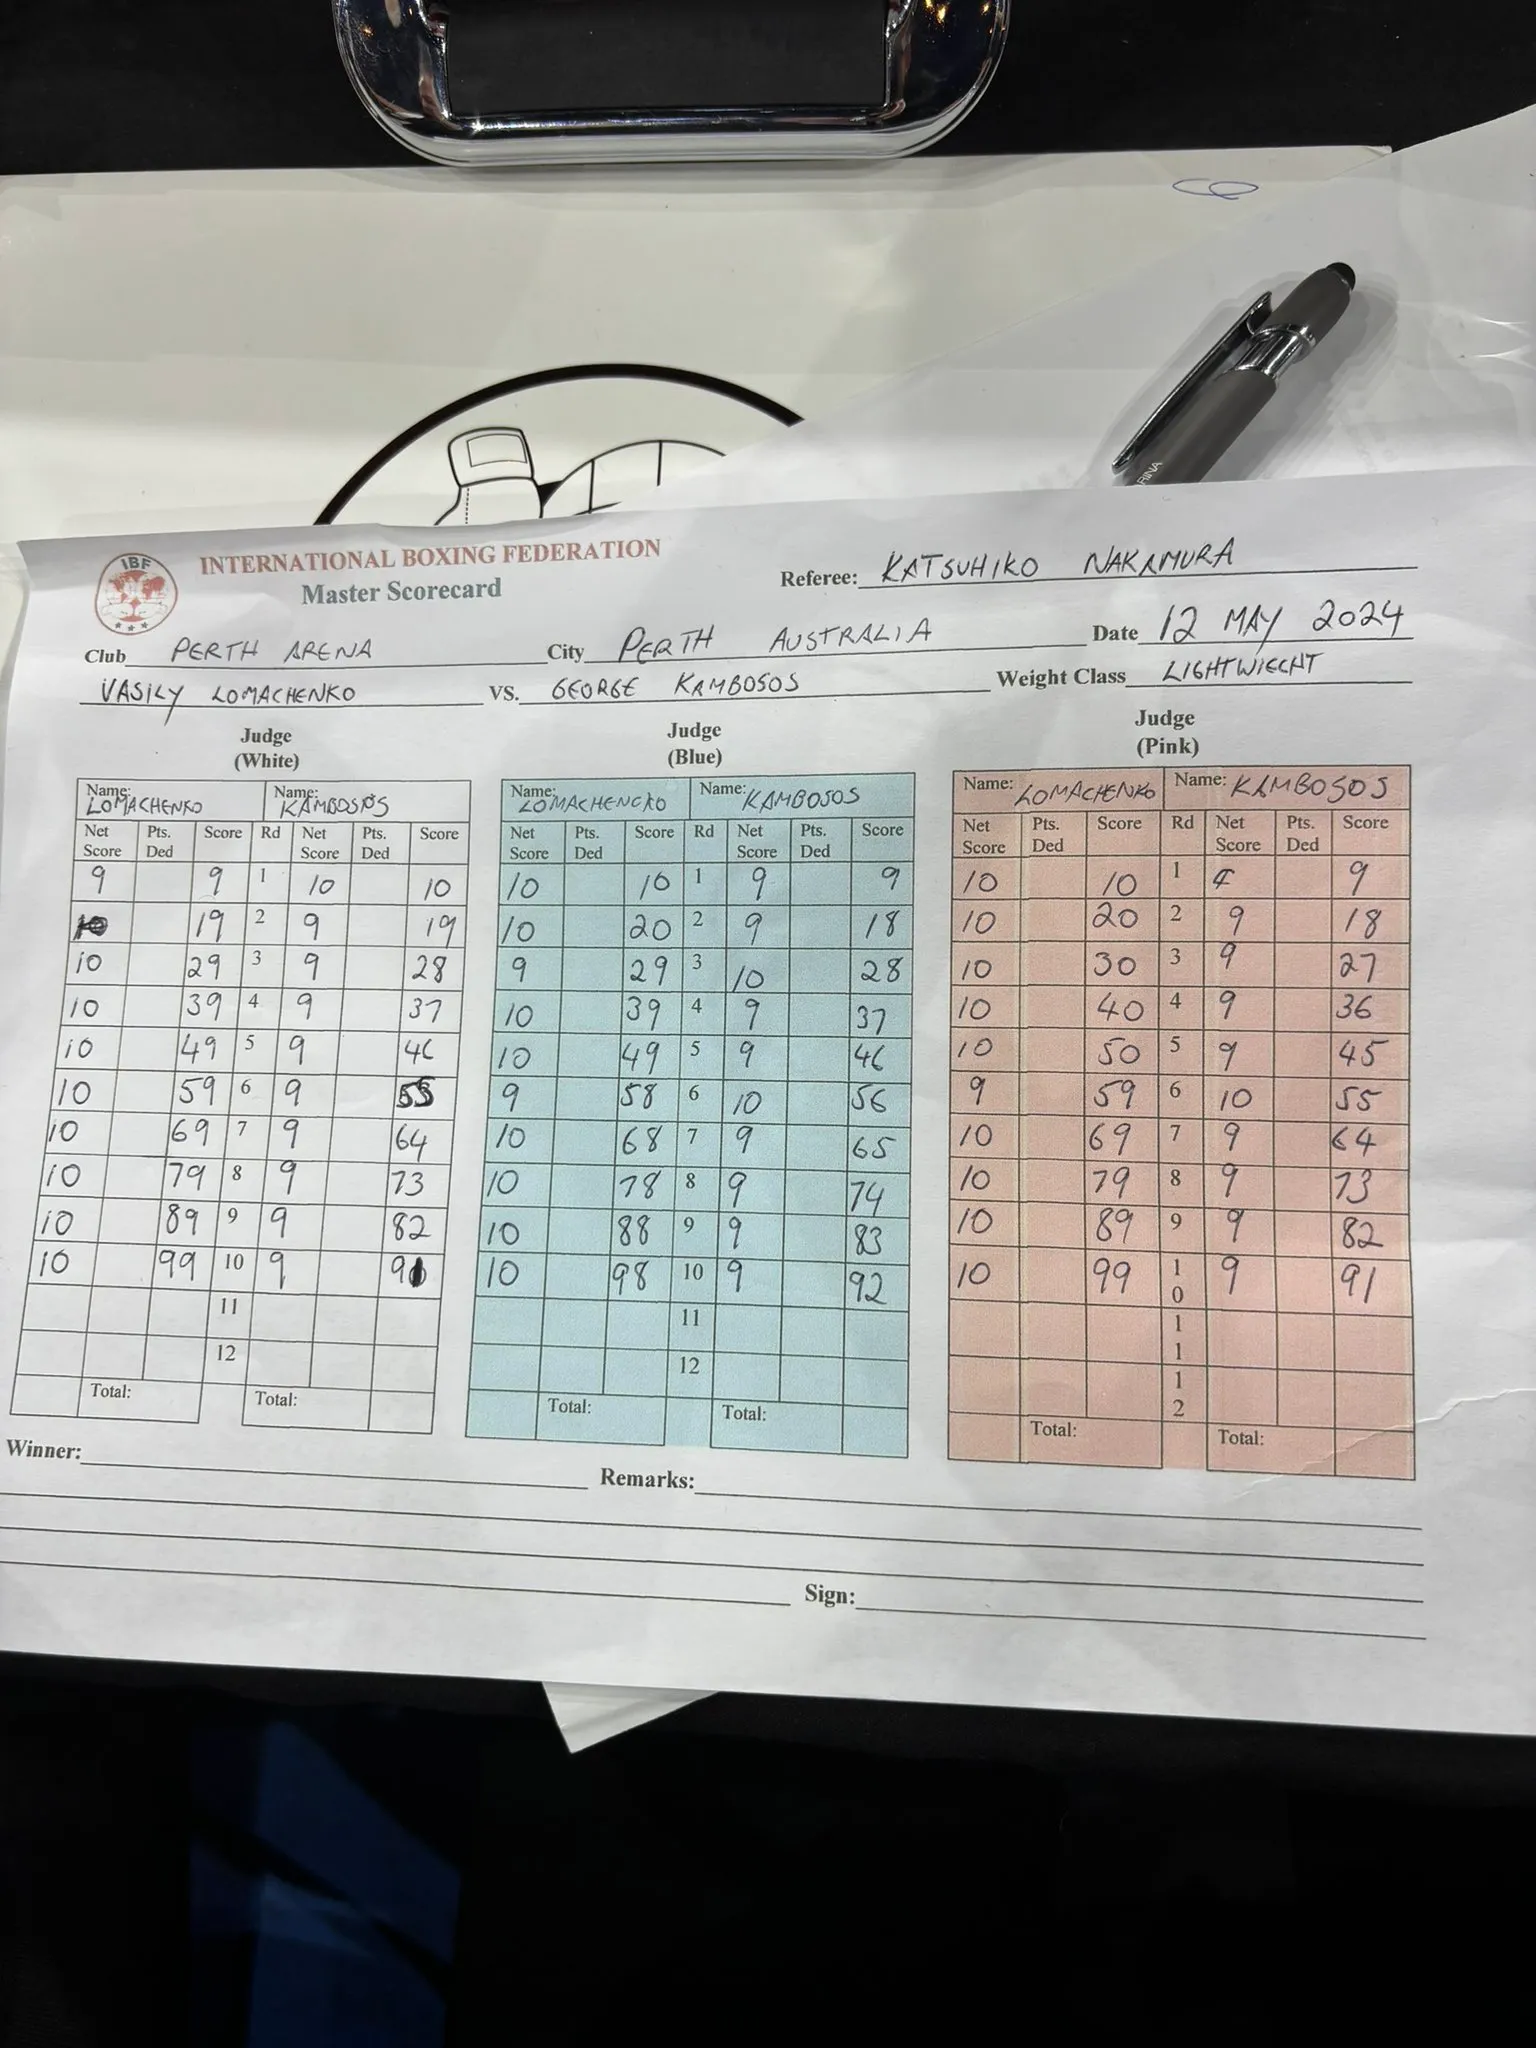 RINA
IBF
INTERNATIONAL BOXING FEDERATION
Master Scorecard
Referee: KATSUHIKO NAKAMURA
Club PERTH ARENA City PERTH AUSTRALIA Date 12 MAY 2024
VASILY LOMACHENKO VS. GEORGE KAMBOSOS Weight Class LIGHTWIECHT
Judge (White)
Name: LOMACHENKO Name: KAMBOSOS
Net Score Pts. Ded Score Rd Net Score Pts. Ded Score
9 9 1 10 10
10 19 2 9 19
10 29 3 9 28
10 39 4 9 37
10 49 5 9 46
10 59 6 9 55
10 69 7 9 64
10 79 8 9 73
10 89 9 9 82
10 99 10 9 91
11
12
Total: Total:
Judge (Blue)
Name: LOMACHENCKO Name: KAMBOSOS
Net Score Pts. Ded Score Rd Net Score Pts. Ded Score
10 10 1 9 9
10 20 2 9 18
9 29 3 10 28
10 39 4 9 37
10 49 5 9 46
9 58 6 10 56
10 68 7 9 65
10 78 8 9 74
10 88 9 9 83
10 98 10 9 92
11
12
Total: Total:
Judge (Pink)
Name: LOMACHENKO Name: KAMBOSOS
Net Score Pts. Ded Score Rd Net Score Pts. Ded Score
10 10 1 9
10 20 2 9 18
10 30 3 9 27
10 40 4 9 36
10 50 5 9 45
9 59 6 10 55
10 69 7 9 64
10 79 8 9 73
10 89 9 9 82
10 99 10 9 91
11
12
Total: Total:
Winner:
Remarks:
Sign: